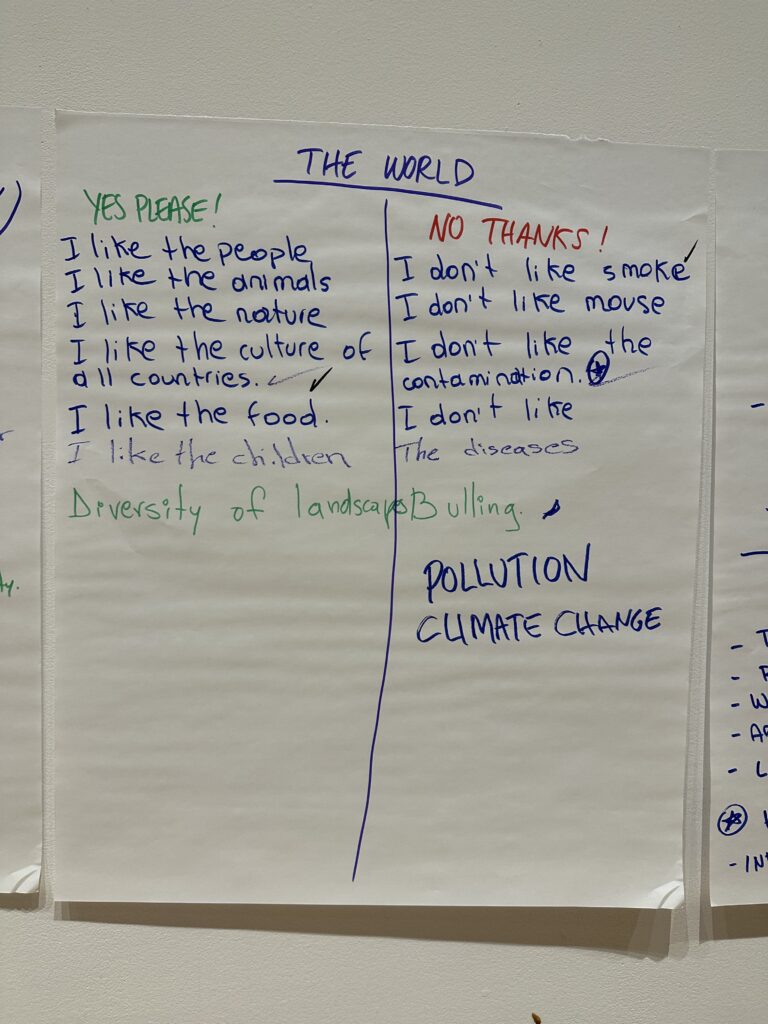 THE WORLD
YES PLEASE!
I like the people
I like the animals
I like the nature
I like the culture of
all countries.
I like the food.
I like the children
Diversity of landscaps
NO THANKS!
I don't like smoke
I don't like mouse
I don't like the
contamination.
I don't like
The diseases
Bulling.
POLLUTION
CLIMATE CHANGE